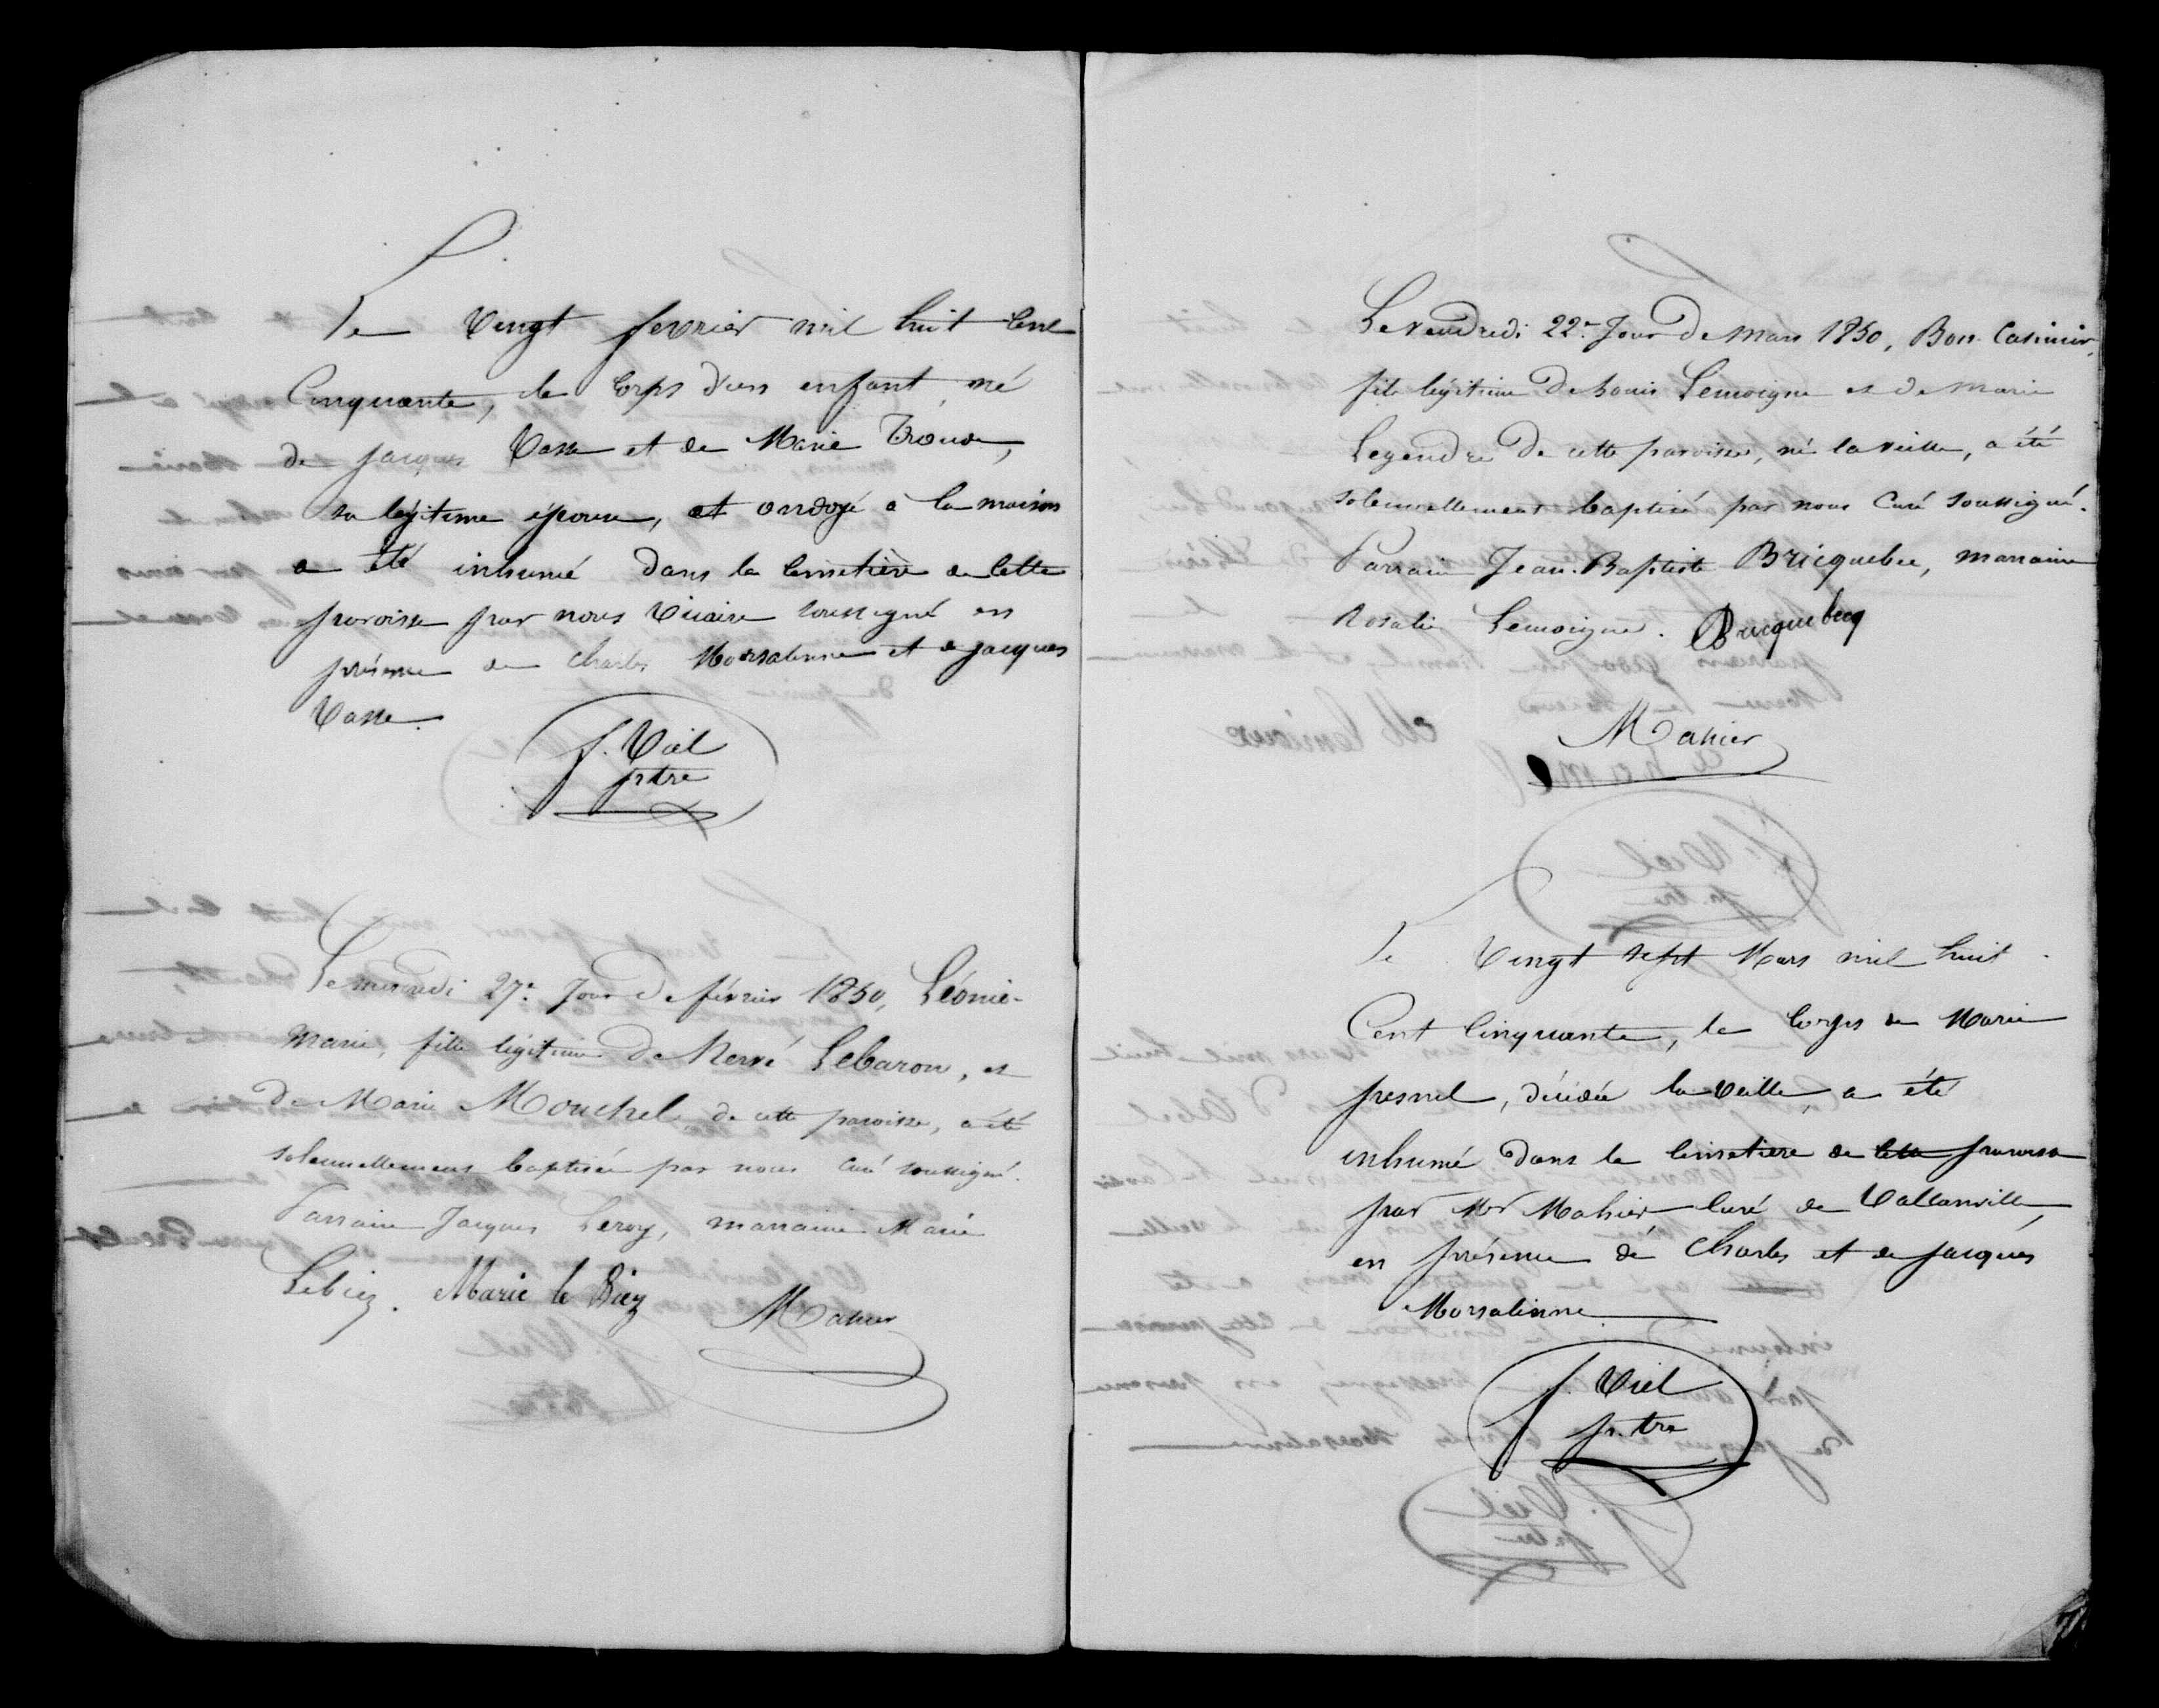 Le Vingt fevrier mil huit Cent
Cinquante, le Corps d'un enfant né
de Jacques Vasse et de Marie Trouve,
sa légitime épouse, et ondoyé à la maison
a été inhumé dans le Cimetière de Cette
paroisse par nous Vicaire soussigné en
présence de Charles Morsalinne et de Jacques
Vasse.
f. Viel
ptre
Le mercredi 27e Jour de février 1850, Léonie-
Marie, fille légitime de Hervé Lebaron, et
de Marie Mouchel, de cette paroisse, a été
solennellement baptisée par nous Curé soussigné.
Parrain Jacques Leroy, marraine Marie
Lebiez. Marie le Biez
Mahier
Le vendredi 22e Jour de Mars 1850, Bon-Casimir,
fils légitime de Louis Lemoigne et de Marie
Legendre de cette paroisse, né la veille, a été
solennellement baptisé par nous Curé soussigné.
Parrain Jean-Baptiste Bricquebec, marraine
Rosalie Lemoigne. Bricquebecq
Mahier
Le Vingt sept Mars mil huit
Cent Cinquante, le Corps de Marie
fresnel, décédée la Veille, a été
inhumé dans le Cimetiere de Cette paroisse
par Mr Mahier, Curé de Valcanville,
en présence de Charles et de Jacques
Morsalinne.
f. Viel
p.tre